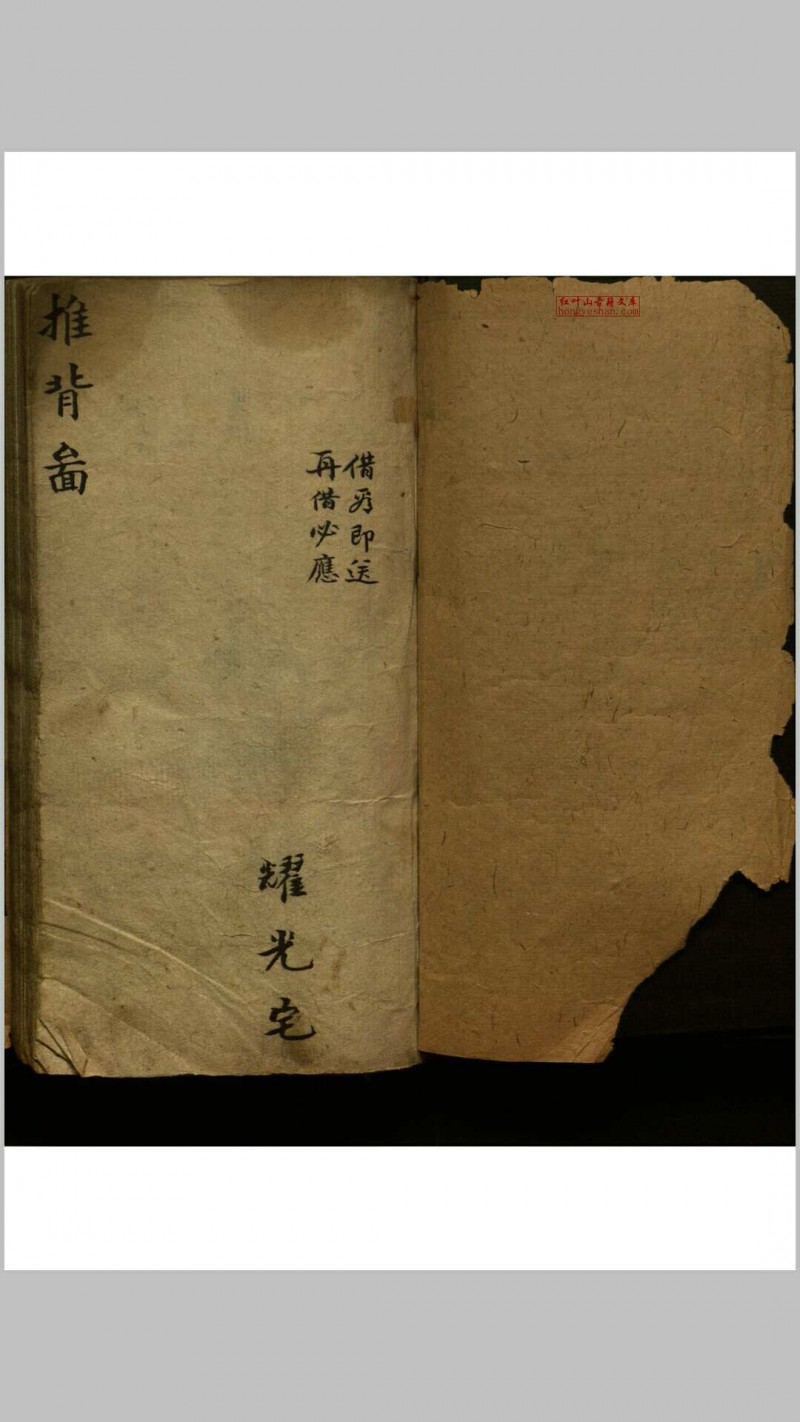 红叶山古籍文库
hongyeshan.com
借即送
再借必應
耀光宅
推背啚